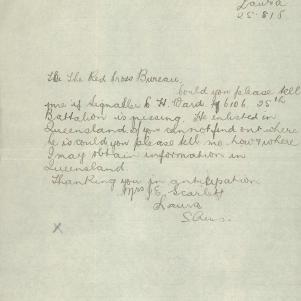 Laura
25-8-16
To The Red Cross Bureau,
Could you please tell
me if Signaller C H. Dard 6106. 25th
Battalion is missing. He enlisted in
Queensland. If you cannot find out where
he is could you please tell me how & where
I may obtain information in
Queensland
Thanking you in anticipation
Mrs J E Scarlett
Laura
S Aus.
X